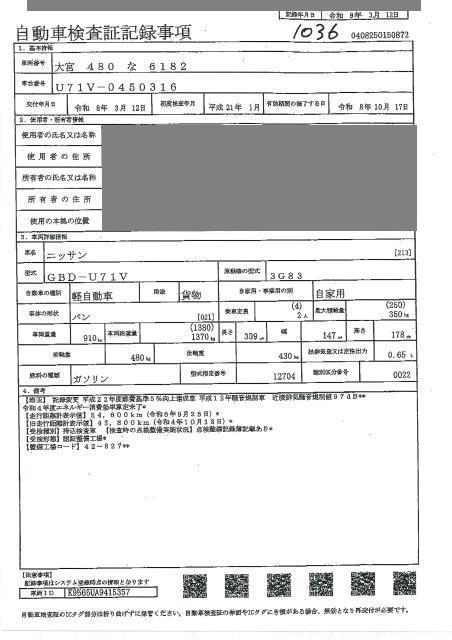 記録年月日 令和 8年 3月 12日
自動車検査証記録事項 1036 0408250150872
1. 基本情報
車両番号 大宮 480 な 6182
車台番号 U71V-0450316
交付年月日 令和 8年 3月 12日 初度検査年月 平成 21年 1月 有効期間の満了する日 令和 8年10月 17日
2. 使用者・所有者情報
使用者の氏名又は名称
使用者の住所
所有者の氏名又は名称
所有者の住所
使用の本拠の位置
3. 車両詳細情報
車名 ニッサン [213]
型式 GBD-U71V 原動機の型式 3G83
自動車の種別 軽自動車 用途 貨物 自家用・事業用の別 自家用
車体の形状 バン [021] 乗車定員 (4) 2人 最大積載量 (250) 350kg
車両重量 910kg 車両総重量 (1380) 1370kg 長さ 339cm 幅 147cm 高さ 178cm
前軸重 480kg 後軸重 430kg 総排気量又は定格出力 0.65 L
燃料の種類 ガソリン 型式指定番号 12704 類別区分番号 0022
4. 備考
【埼玉】 記録変更 平成22年度燃費基準5%向上達成車 平成12年騒音規制車 近接排気騒音規制値97dB**
令和4年度エネルギー消費効率算定未了*
【走行距離計表示値】54,600km (令和6年9月25日)*
【旧走行距離計表示値】43,800km (令和4年10月18日)*
【受検種別】持込検査車 【検査時の点検整備実施状況】点検整備記録簿記載あり*
【受検形態】認証整備工場*
【整備工場コード】42-827**
【注意事項】
記録事項はシステム登録時点の情報となります
車両ID K9565UA9415357
自動車検査証のICタグ部分は折り曲げずに保管ください。自動車検査証の券面やICタグにき損がある場合、無効となり再交付が必要です。